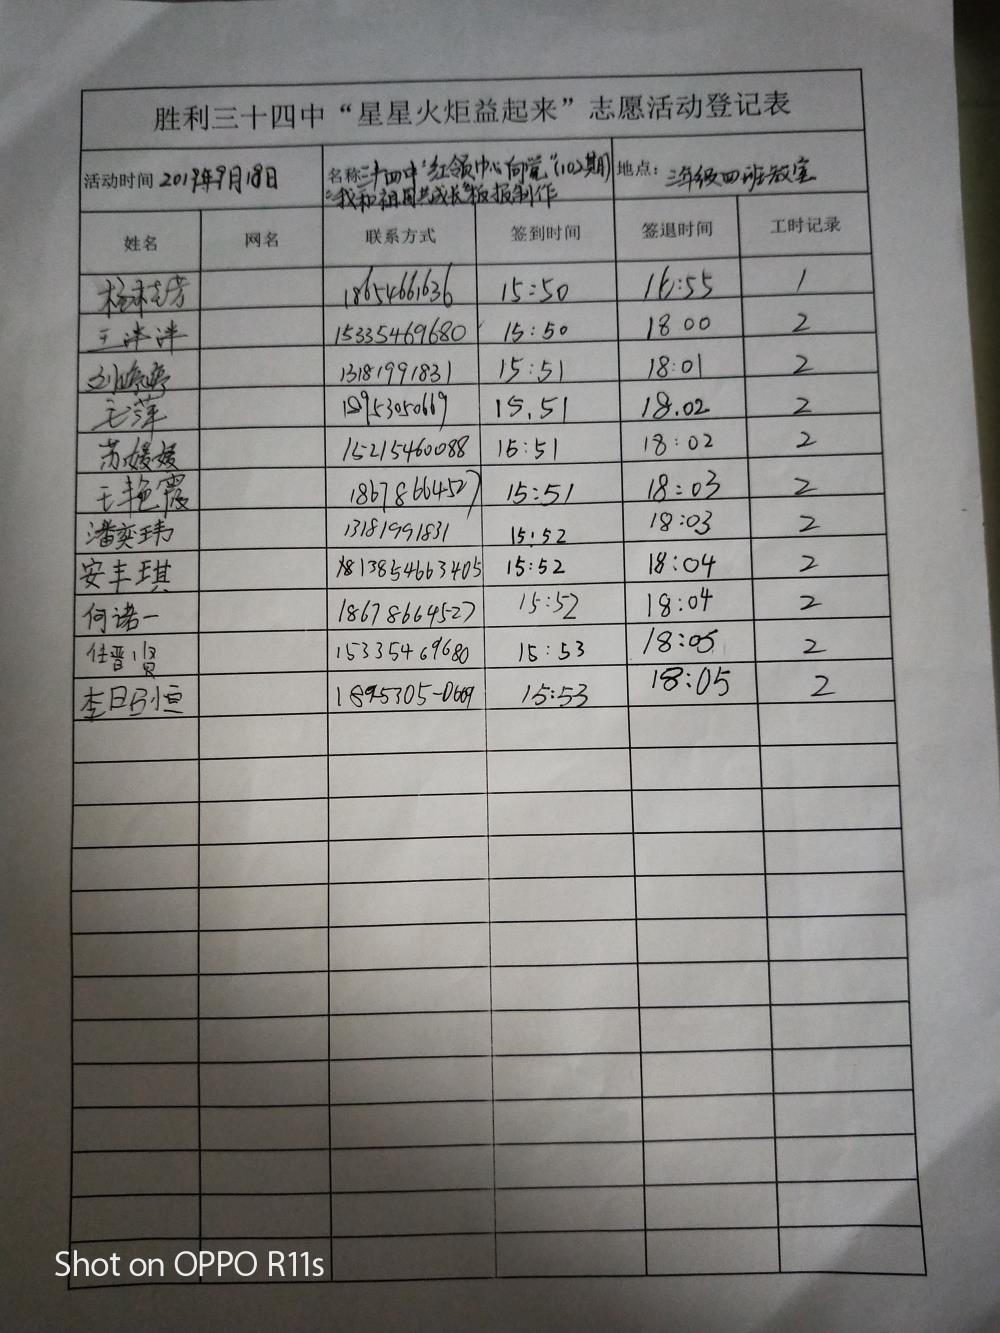 胜利三十四中“星星火炬益起来”志愿活动登记表
活动时间 2019年9月18日 名称:三十四中“红领巾心向党”(102期) 地点: 三年级四班教室
“我和祖国共成长”板报制作
姓名 网名 联系方式 签到时间 签退时间 工时记录
18654661636 15:50 16:55 1
王洋洋 15335469680 15:50 18 00 2
刘婷婷 13181991831 15:51 18:01 2
毛萍 18953050669 15.51 18.02 2
苏媛媛 15215460088 15:51 18:02 2
王艳霞 18678664527 15:51 18:03 2
潘奕玮 13181991831 15:52 18:03 2
安丰琪 13854663405 15:52 18:04 2
何诺一 18678664527 15:52 18:04 2
任晋贤 15335469680 15:53 18:05 2
李日恒 1895305-0669 15:53 18:05 2
Shot on OPPO R11s